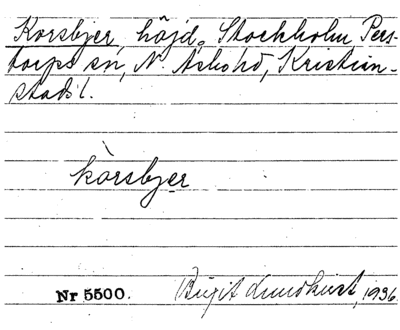 Korsbjer, höjd, Stockholm Pers-
torps sn, N. Åsbohd, Kristian-
stads l.
kòrsbjer
Nr 5500. Birgit Lundkvist, 1936.